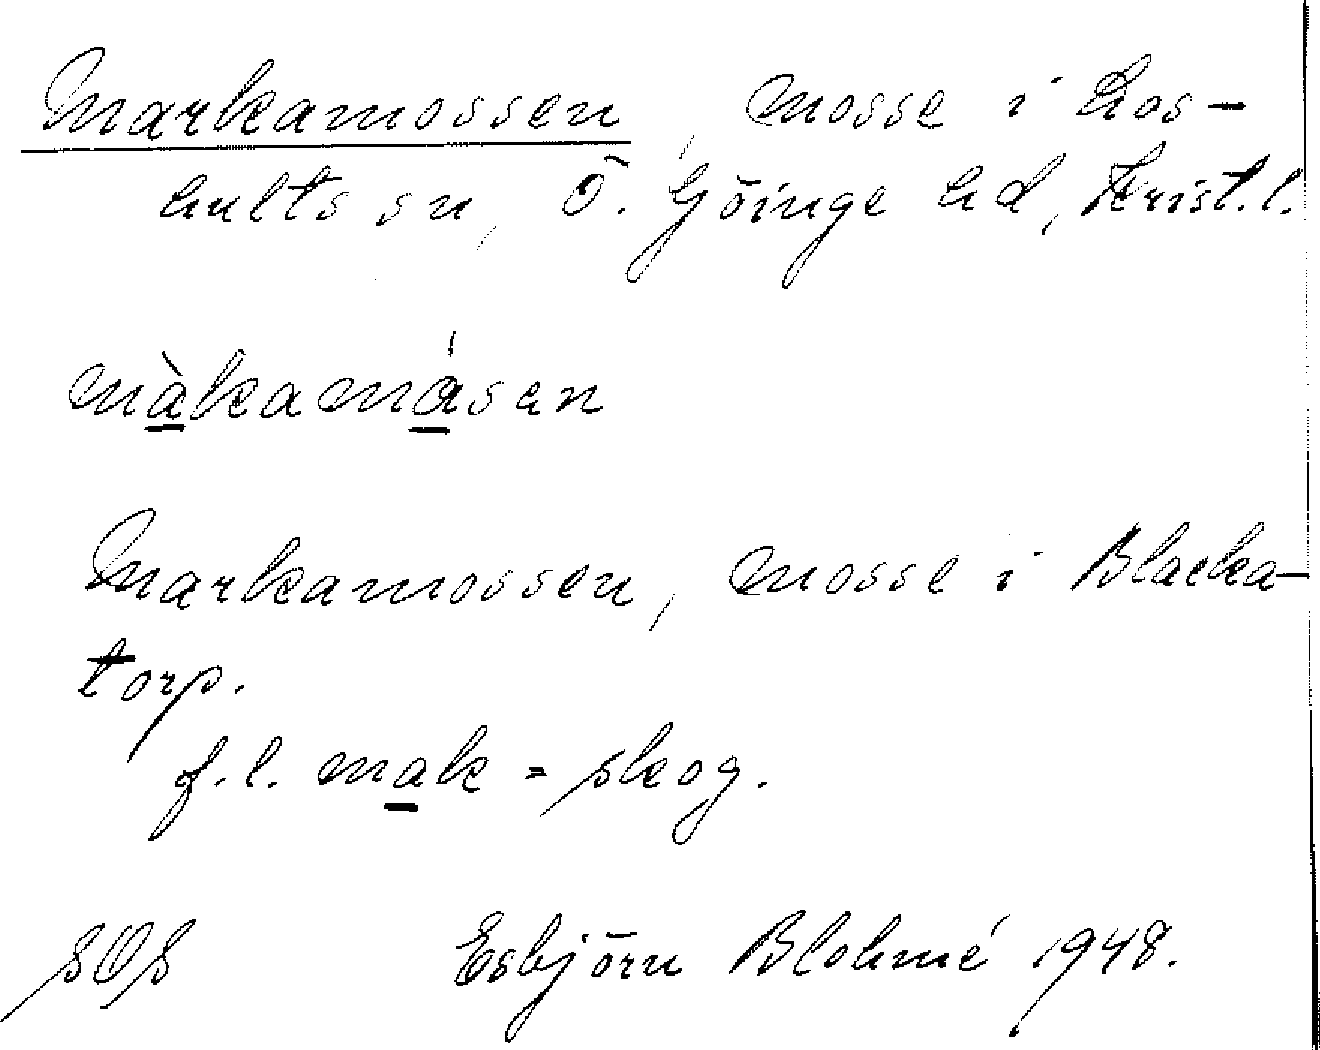 Markamossen, mosse i Los-
hults sn, Ö. Göinge hd, Krist.l.
màkamåsen
Markamossen, mosse i Blacka-
torp.
f.l. mak = skog.
SOS Esbjörn Blohmé 1948.